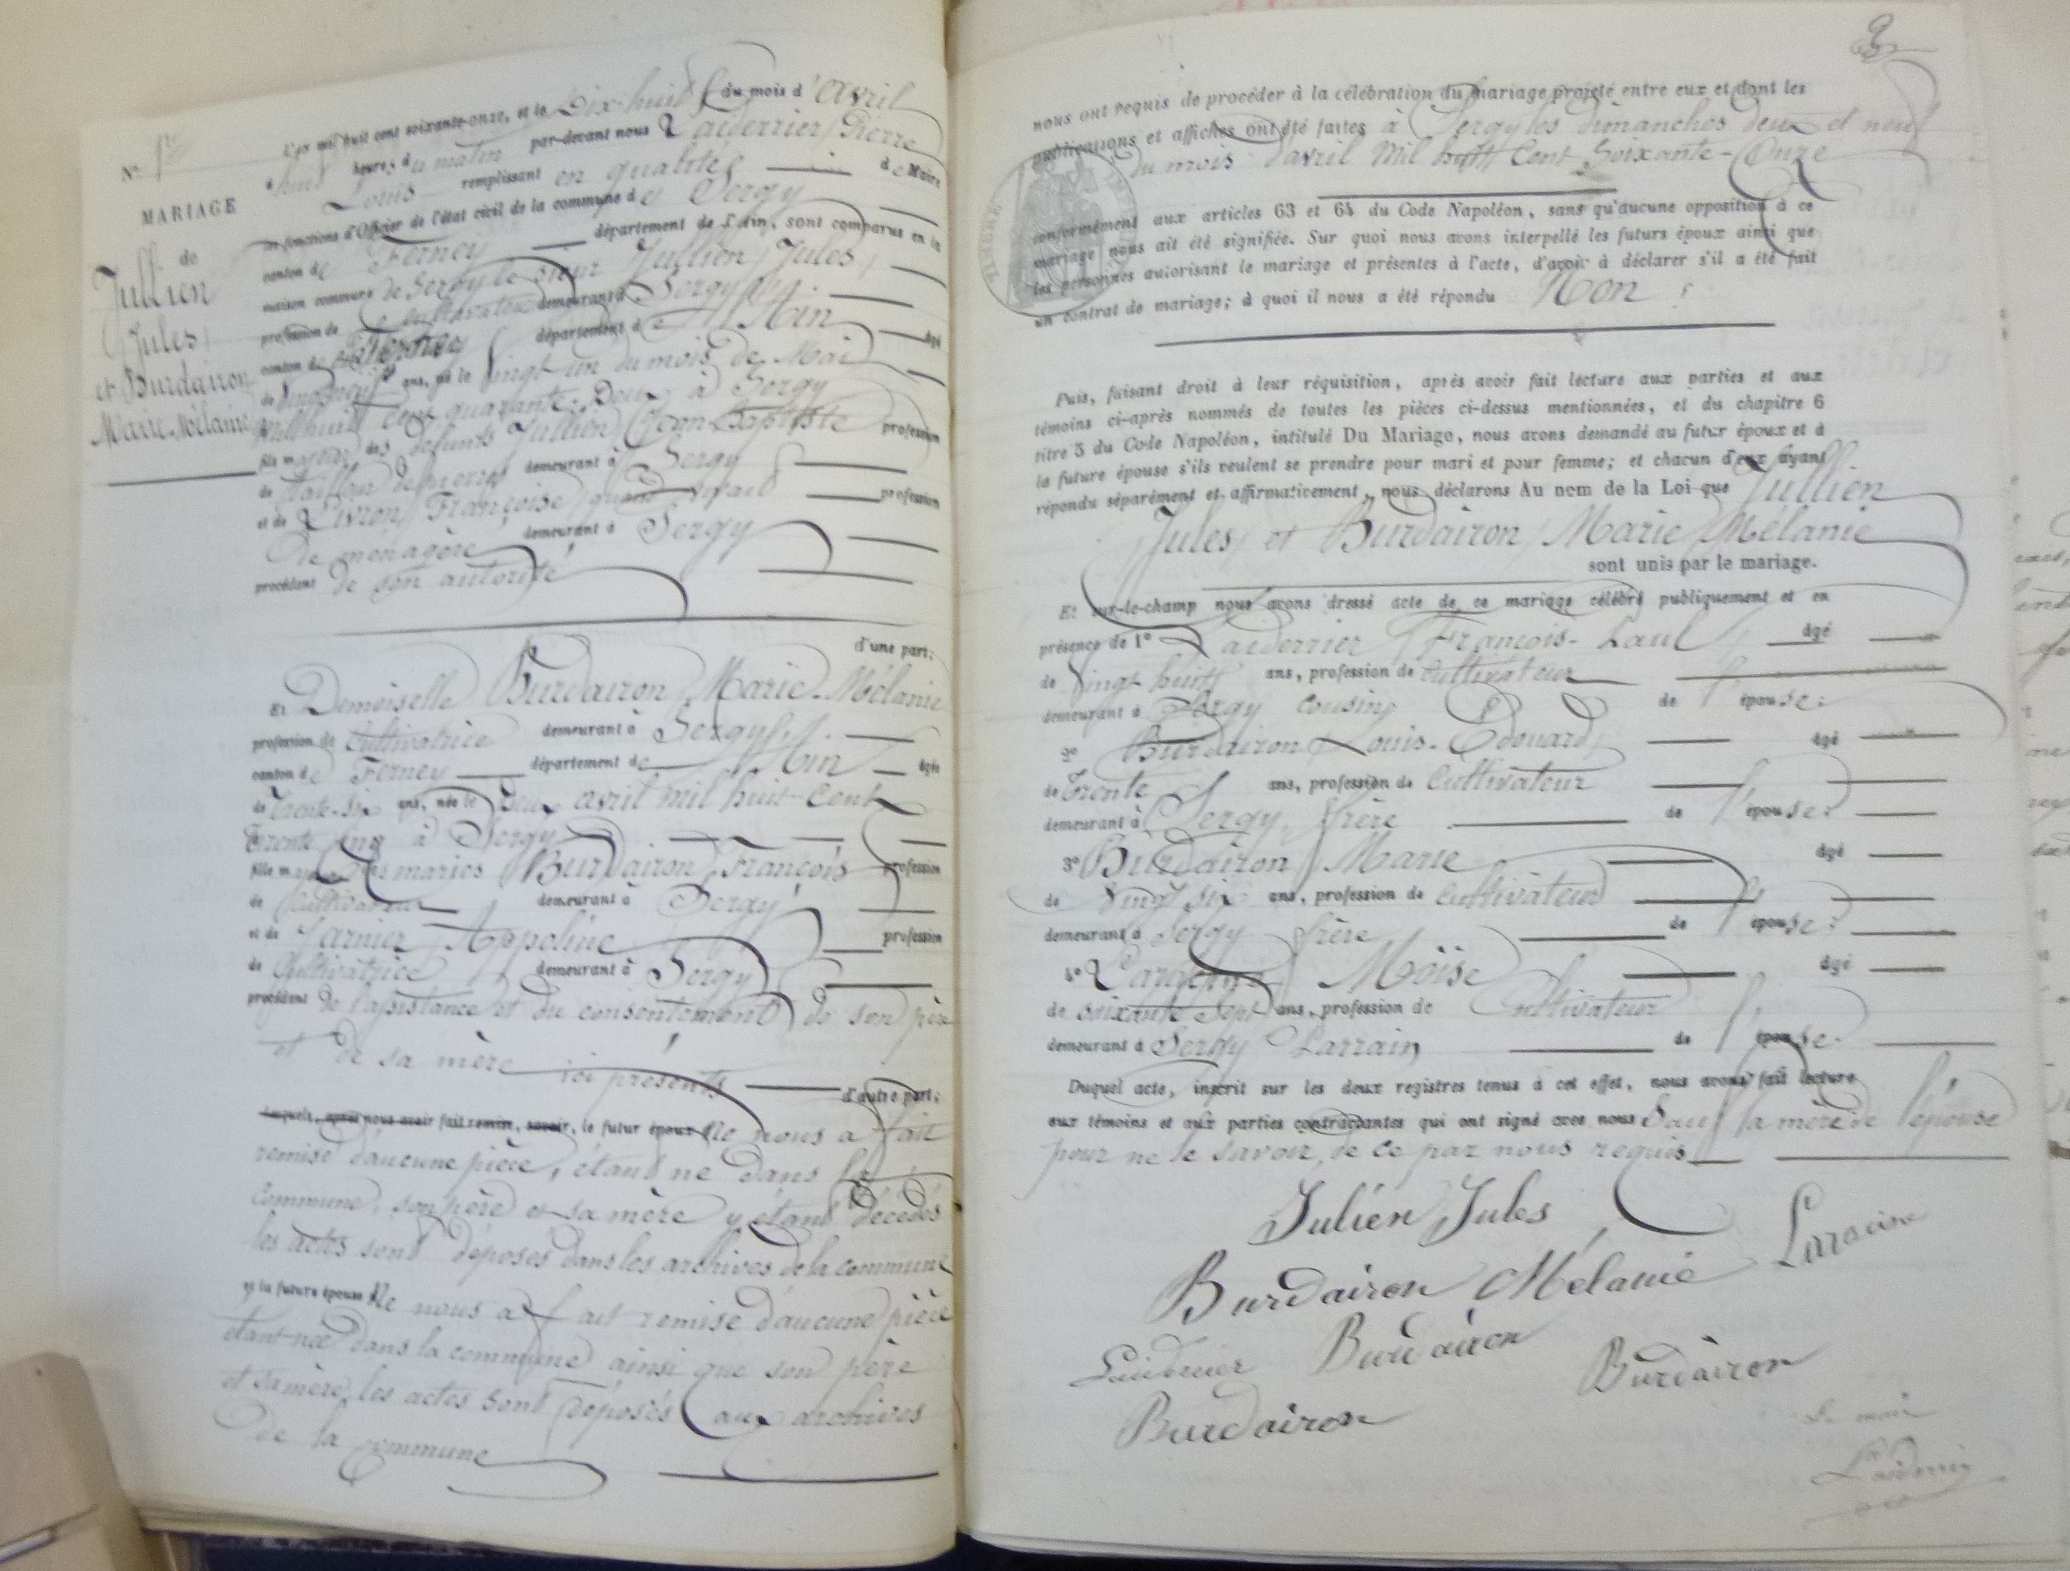 No 1er
MARIAGE
de
Jullien
Jules
et Burdairon
Marie-Mélanie
L'an mil huit cent soixante-onze, et le Dix-huit du mois d'Avril
à huit heures du matin par-devant nous Laiderrier Pierre
Louis remplissant en qualité de Maire
les fonctions d'Officier de l'état civil de la commune de Sergy
canton de Ferney département de l'Ain, sont comparus en la
maison commune de Sergy le sieur Jullien Jules
profession de cultivateur demeurant à Sergy
canton de Ferney département de l'Ain âgé
de vingt neuf ans, né le vingt un du mois de Mai
mil huit cent quarante-Deux à Sergy
fils majeur des défunts Jullien Jean Baptiste profession
de tailleur de pierres demeurant à Sergy
et de Livron Françoise quand vivait profession
de ménagère demeurant à Sergy
procédant de son autorité
d'une part;
Et Demoiselle Burdairon Marie-Mélanie
profession de Cultivatrice demeurant à Sergy
canton de Ferney département de l'Ain âgée
de trente-six ans, née le Deux avril mil huit-cent
Trente cinq à Sergy
fille majeure des mariés Burdairon François profession
de Cultivateur demeurant à Sergy
et de Jarnier Appoline profession
de Cultivatrice demeurant à Sergy
procédant de l'assistance et du consentement de son père
et de sa mère ici présents d'autre part;
Lesquels, après nous avoir fait remise, savoir, le futur époux Ne nous a fait
remise d'aucune pièce, étant né dans la
Commune, son père et sa mère y étant décédés
les actes sont déposés dans les archives de la commune
et la future épouse Ne nous a fait remise d'aucune pièce
étant née dans la commune ainsi que son père
et sa mère, les actes sont déposés aux archives
de la commune
2
nous ont requis de procéder à la célébration du mariage projeté entre eux et dont les
publications et affiches ont été faites à Sergy les dimanches deux et neuf
du mois d'avril Mil huit Cent Soixante-Onze
conformément aux articles 63 et 64 du Code Napoléon, sans qu'aucune opposition à ce
mariage nous ait été signifiée. Sur quoi nous avons interpellé les futurs époux ainsi que
les personnes autorisant le mariage et présentes à l'acte, d'avoir à déclarer s'il a été fait
un contrat de mariage; à quoi il nous a été répondu Non
Puis, faisant droit à leur réquisition, après avoir fait lecture aux parties et aux
témoins ci-après nommés de toutes les pièces ci-dessus mentionnées, et du chapitre 6
titre 5 du Code Napoléon, intitulé Du Mariage, nous avons demandé au futur époux et à
la future épouse s'ils veulent se prendre pour mari et pour femme; et chacun d'eux ayant
répondu séparément et affirmativement, nous déclarons Au nom de la Loi que Jullien
Jules et Burdairon Marie Mélanie
sont unis par le mariage.
Et sur-le-champ nous avons dressé acte de ce mariage célébré publiquement et en
présence de 1° Laiderrier François-Paul âgé
de vingt huit ans, profession de cultivateur
demeurant à Sergy Cousin de l'épouse:
2° Burdairon Louis-Edouard âgé
de Trente ans, profession de Cultivateur
demeurant à Sergy frère de l'épouse:
3° Burdairon Marie âgé
de Vingt six ans, profession de Cultivateur
demeurant à Sergy frère de l'épouse:
4° Moïse âgé
de soixante Sept ans, profession de Cultivateur
demeurant à Sergy Parrain de l'épouse.
Duquel acte, inscrit sur les deux registres tenus à cet effet, nous avons fait lecture
aux témoins et aux parties contractantes qui ont signé avec nous Sauf la mère de l'épouse
pour ne le savoir, de ce par nous requis
Julien Jules
Burdairon Mélanie
Burdairon
Burdairon
Burdairon
Le maire